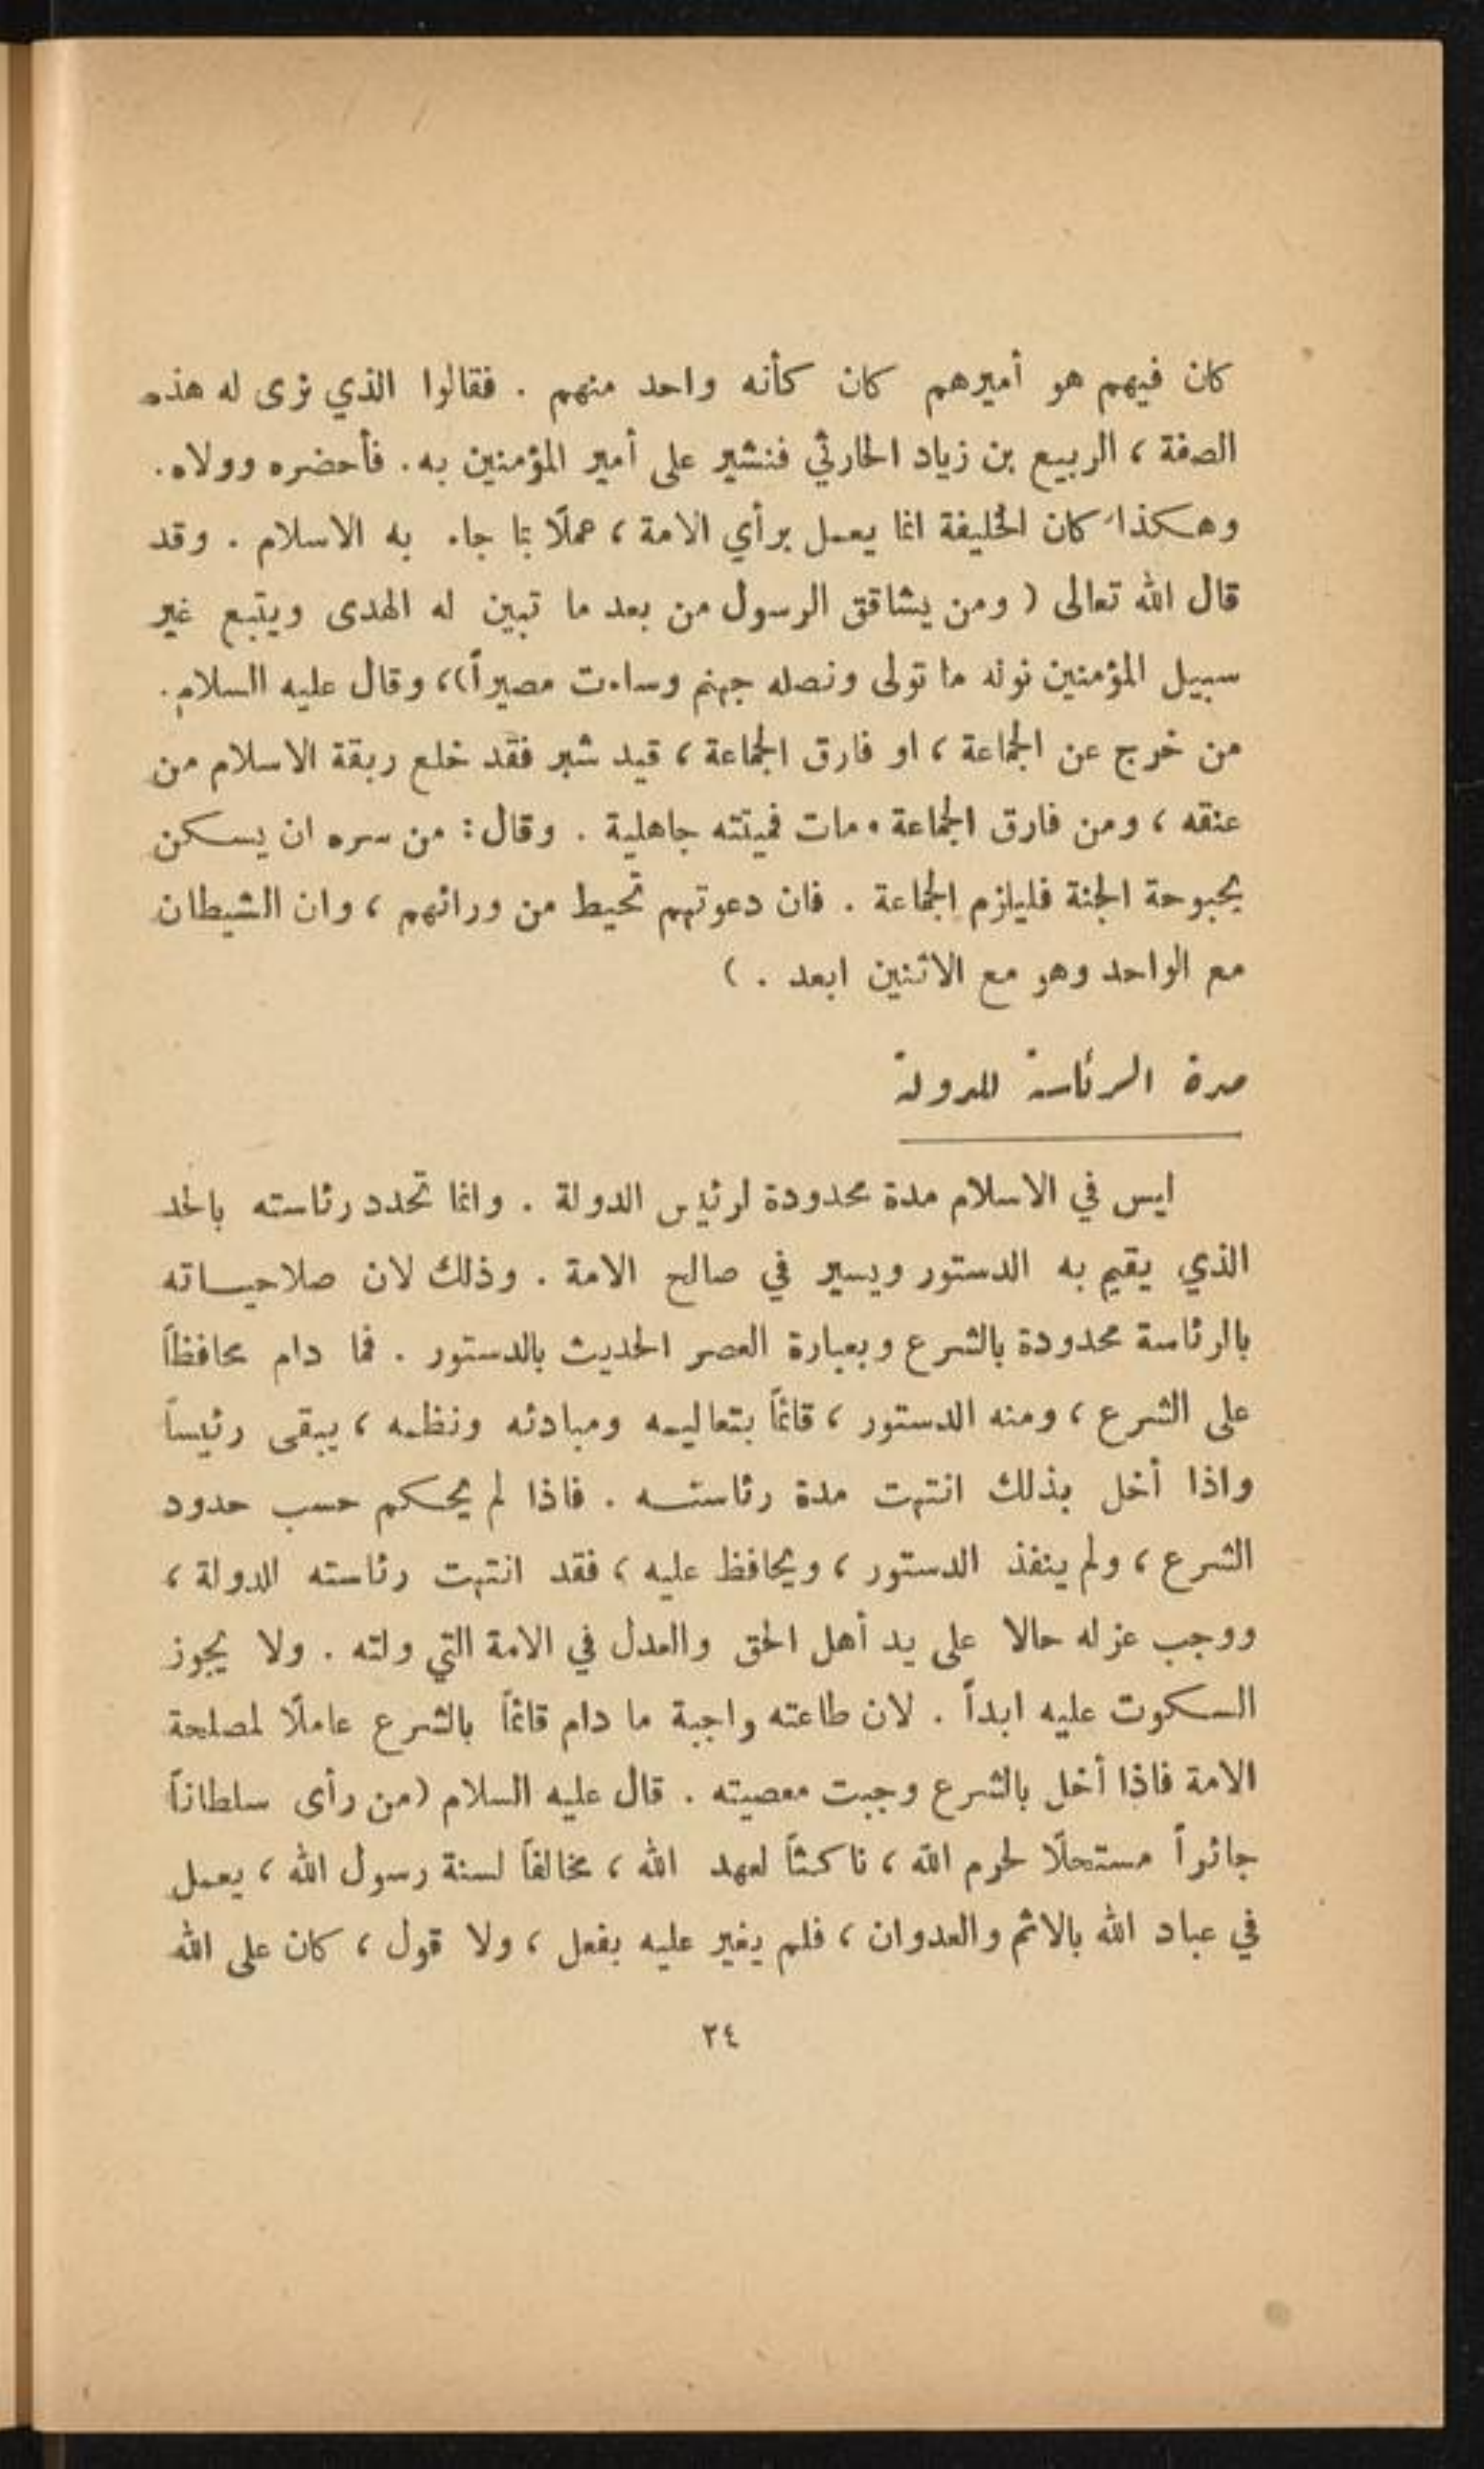 كان فيهم هو أميرهم كان كأنه واحد منهم . فقالوا الذي نرى له هذه
الصفة ، الربيع بن زياد الحارثي فنشير على أمير المؤمنين به. فأحضره وولاه.
وهكذا كان الخليفة انما يعمل برأي الامة ، عملًا بما جاء به الاسلام . وقد
قال الله تعالى ( ومن يشاقق الرسول من بعد ما تبين له الهدى ويتبع غير
سبيل المؤمنين نوله ما تولى ونصله جهنم وساءت مصيراً)، وقال عليه السلام.
من خرج عن الجماعة ، او فارق الجماعة ، قيد شبر فقد خلع ربقة الاسلام من
عنقه ، ومن فارق الجماعة . مات فميتته جاهلية . وقال : من سره ان يسكن
بحبوحة الجنة فليلزم الجماعة . فان دعوتهم تحيط من ورائهم ، وان الشيطان
مع الواحد وهو مع الاثنين ابعد . )
مدة الرئاسة للدولة
ليس في الاسلام مدة محدودة لرئيس الدولة . وانما تحدد رئاسته بالحد
الذي يقيم به الدستور ويسير في صالح الامة . وذلك لان صلاحياته
بالرئاسة محدودة بالشرع وبعبارة العصر الحديث بالدستور . فما دام محافظاً
على الشرع ، ومنه الدستور ، قائماً بتعاليمه ومبادئه ونظمه ، يبقى رئيساً
واذا أخل بذلك انتهت مدة رئاسته . فاذا لم يحكم حسب حدود
الشرع ، ولم ينفذ الدستور ، ويحافظ عليه ، فقد انتهت رئاسته للدولة ،
ووجب عزله حالا على يد أهل الحق والعدل في الامة التي ولته . ولا يجوز
السكوت عليه ابداً . لان طاعته واجبة ما دام قائماً بالشرع عاملًا لمصلحة
الامة فاذا أخل بالشرع وجبت معصيته . قال عليه السلام (من رأى سلطاناً
جائراً مستحلًا لحرم الله ، ناكثاً لعهد الله ، مخالفاً لسنة رسول الله ، يعمل
في عباد الله بالاثم والعدوان ، فلم يغير عليه بفعل ، ولا قول ، كان على الله
٢٤